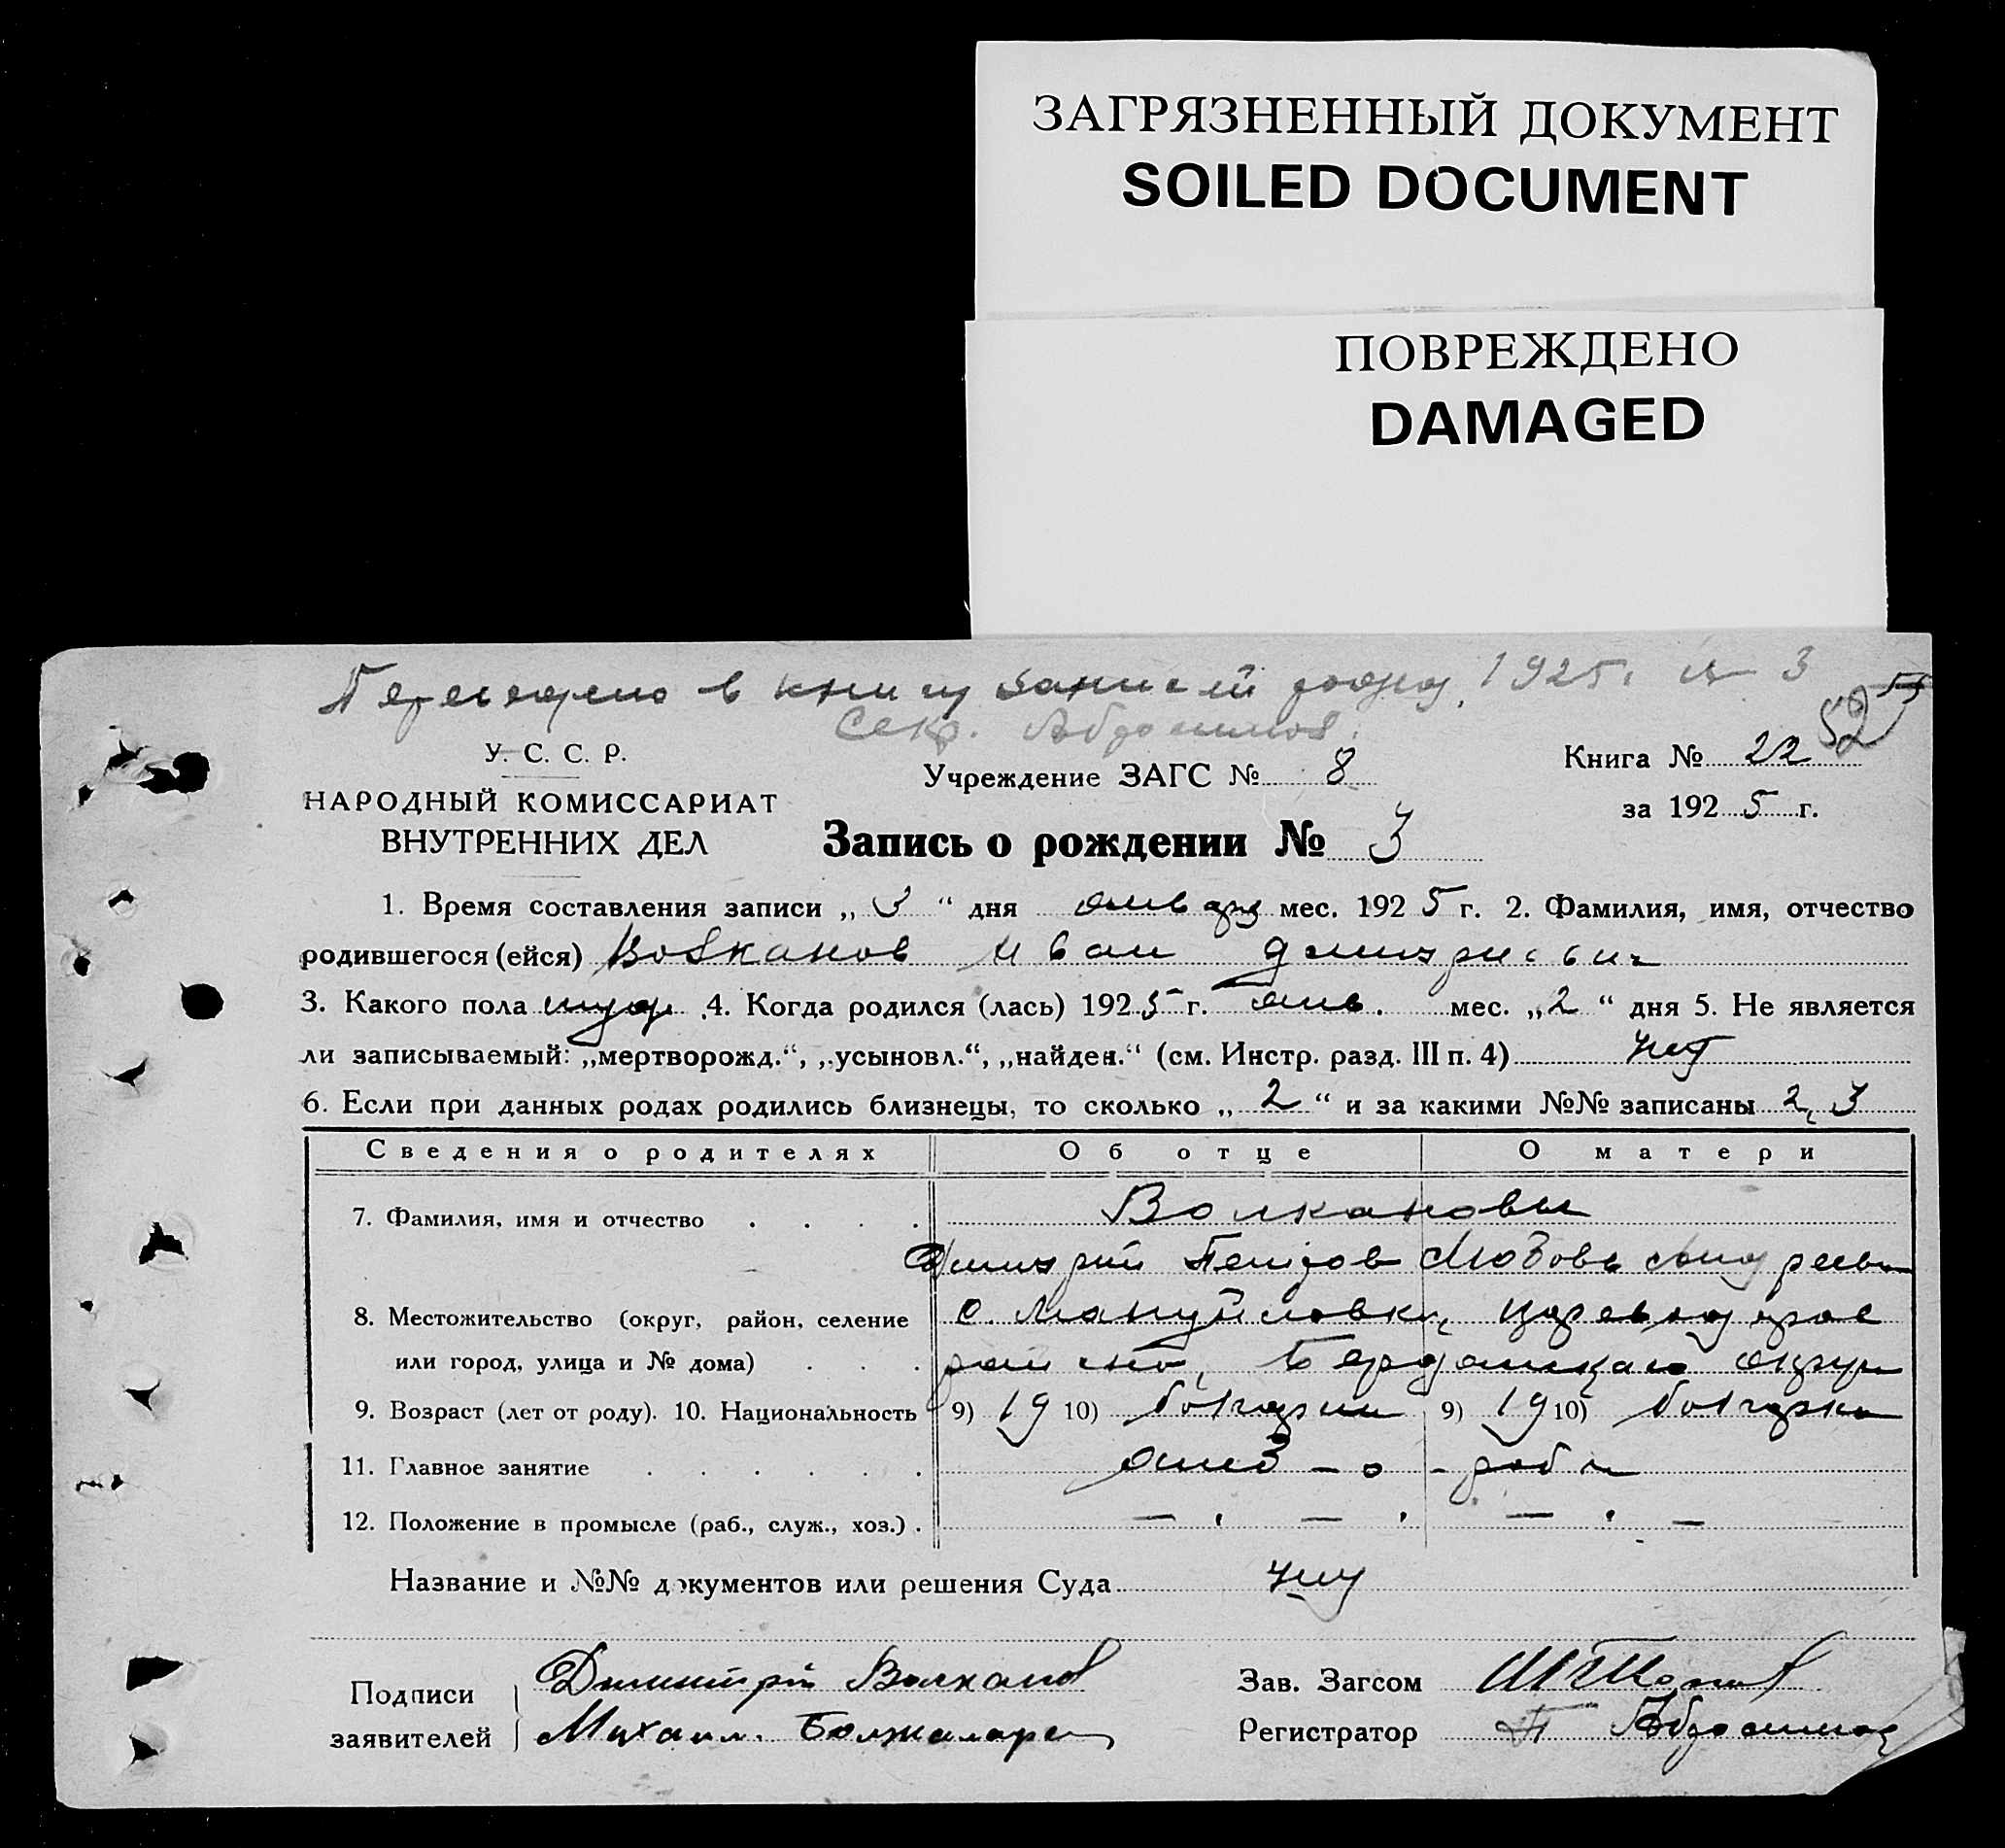 ЗАГРЯЗНЕННЫЙ ДОКУМЕНТ
SOILED DOCUMENT
ПОВРЕЖДЕНО
DAMAGED
в книгу записей 1925 г. 3
Секр. Абросимов
52
У. С. С. Р.
НАРОДНЫЙ КОМИССАРИАТ
ВНУТРЕННИХ ДЕЛ
Учреждение ЗАГС № 8
Книга № 22
за 1925 г.
Запись о рождении № 3
1. Время составления записи „ 3 “ дня января мес. 1925 г. 2. Фамилия, имя, отчество
родившегося (ейся) Волканов Иван Дмитриевич
3. Какого пола муж. 4. Когда родился (лась) 1925 г. янв. мес. „2“ дня 5. Не является
ли записываемый: „мертворожд.“, „усыновл.“, „найден.“ (см. Инстр. разд. III п. 4) нет
6. Если при данных родах родились близнецы, то сколько „ 2 “ и за какими №№ записаны 2, 3
Сведения о родителях Об отце О матери
7. Фамилия, имя и отчество . . . . Волкановы
Дмитрий Петров Любовь Андреевн
8. Местожительство (округ, район, селение с. Мануйловки, Цареводаров
или город, улица и № дома) . . . Бердянскаго округа
9. Возраст (лет от роду). 10. Национальность 9) 19 10) болгарин 9) 19 10) болгарка
11. Главное занятие . . . . . .
12. Положение в промысле (раб., служ., хоз.) . — . — . — . —
Название и №№ документов или решения Суда
Подписи
заявителей
Димитрий Волканов
Михаил.
Зав. Загсом
Регистратор Абросимов